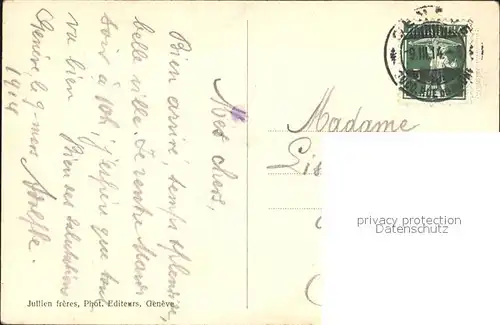 Mes chers,
Bien arrivé, temps splendide,
belle ville. Je rentre Mardi
soir à 10h, j'espère que tout
va bien. Bien des salutations
Genève le 9 mars Adolfe.
1914
9.III.14
Madame
Lis
Jullien frères, Phot. Editeurs, Genève
privacy protection
Datenschutz